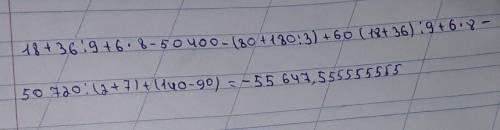 18+36:9+6·8-50400-(80+180:3)+60(18+36):9+6·8-
50720:(2+7)+(140-90)=-55647,555555555